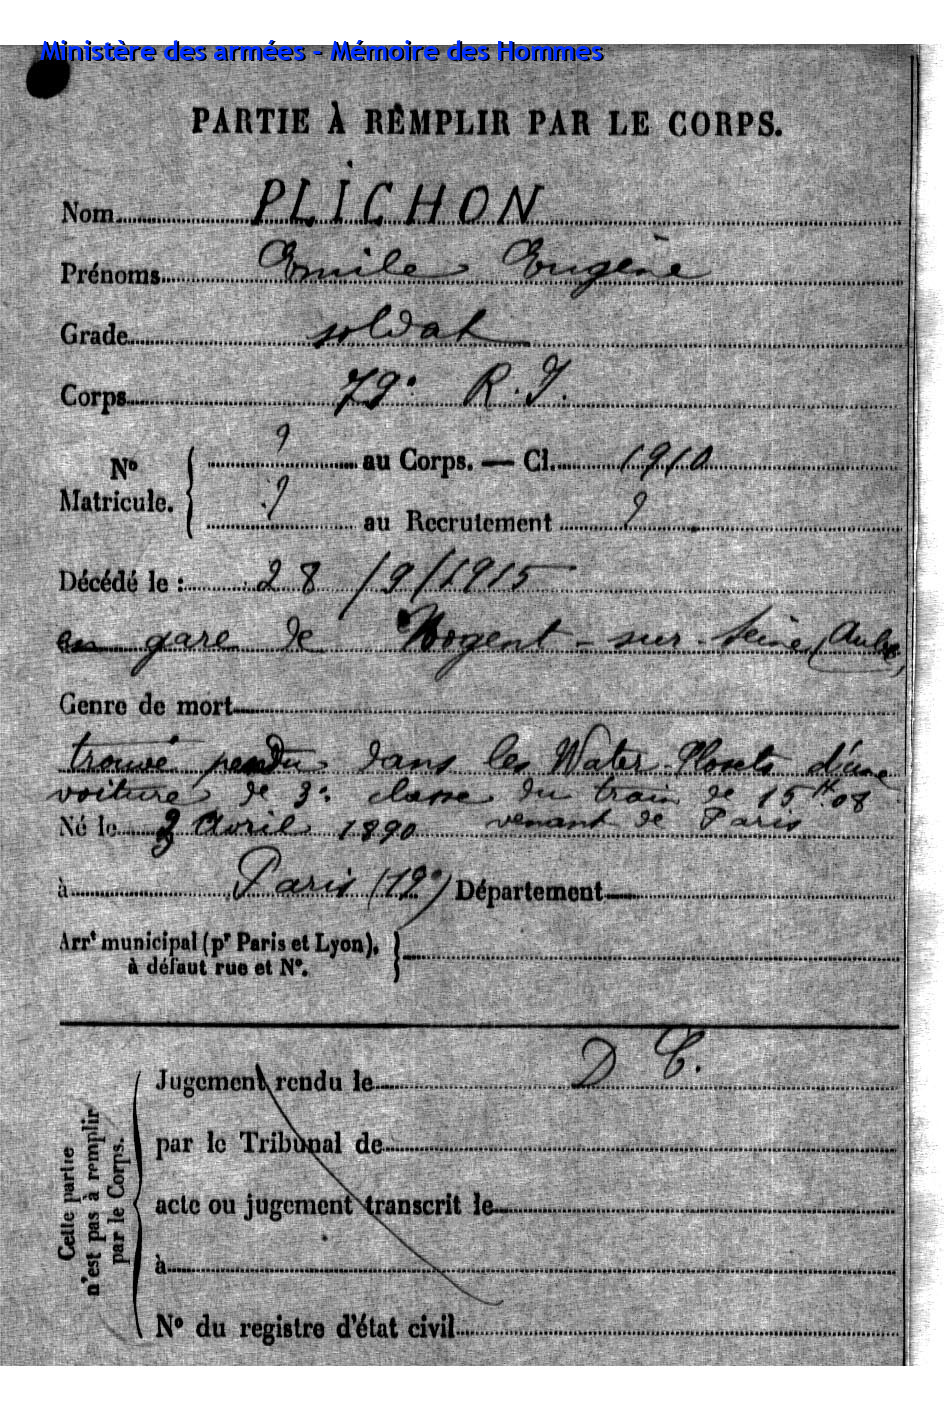 Ministère des armées - Mémoire des Hommes
PARTIE À REMPLIR PAR LE CORPS.
Nom PLICHON
Prénoms Emile Eugène
Grade soldat
Corps 79e R.I.
No Matricule. { ? au Corps. — Cl. 1910
? au Recrutement ?
Décédé le : 28/9/1915
en gare de Nogent-sur-Seine (Aube)
Genre de mort
trouvé pendu dans les Water-Closets d'une
voiture de 3e classe du train de 15H08
venant de Paris
Né le 3 Avril 1890
à Paris (19e) Département
Arrt municipal (pr Paris et Lyon),
à défaut rue et No.
D C.
Jugement rendu le
par le Tribunal de
acte ou jugement transcrit le
à
No du registre d'état civil
Cette partie
n'est pas à remplir
par le Corps.